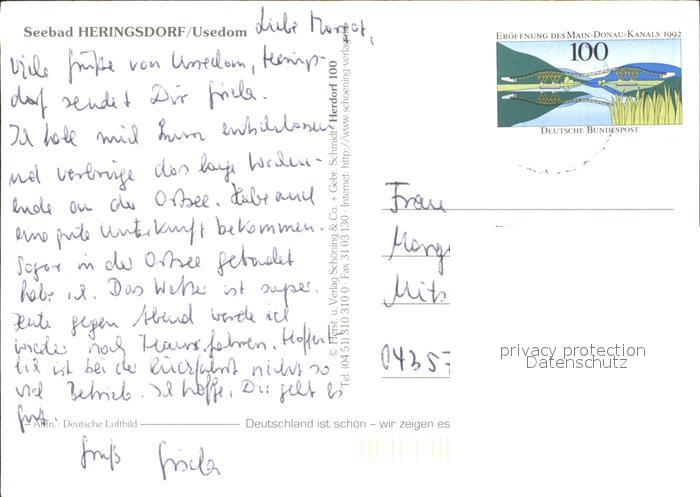 Seebad HERINGSDORF/Usedom
Liebe Margot,
viele Grüße von Usedom, Herings-
dorf sendet Dir Gisela.
Ich habe mich kurz entschlossen
und verbringe das lange Wochen-
ende an der Ostsee. Habe auch
eine gute Unterkunft bekommen.
Sogar in der Ostsee gebadet
habe ich. Das Wetter ist super.
Heute gegen Abend werde ich
wieder nach Hause fahren. Hoffent-
lich ist bei der Rückfahrt nicht so
viel Betrieb. Ich hoffe, Dir geht es
gut.
Gruß Gisela
Aufn.: Deutsche Luftbild
Deutschland ist schön – wir zeigen es
© Herst. u. Verlag Schöning & Co. + Gebr. Schmidt
Herdorf 100
Tel. (04 51) 310 310 0 · Fax 31 03 130 · Internet: http://www.schoening-verlag.de
ERÖFFNUNG DES MAIN-DONAU-KANALS 1992
100
DEUTSCHE BUNDESPOST
Frau
Marg
Mits
04357
privacy protection
Datenschutz